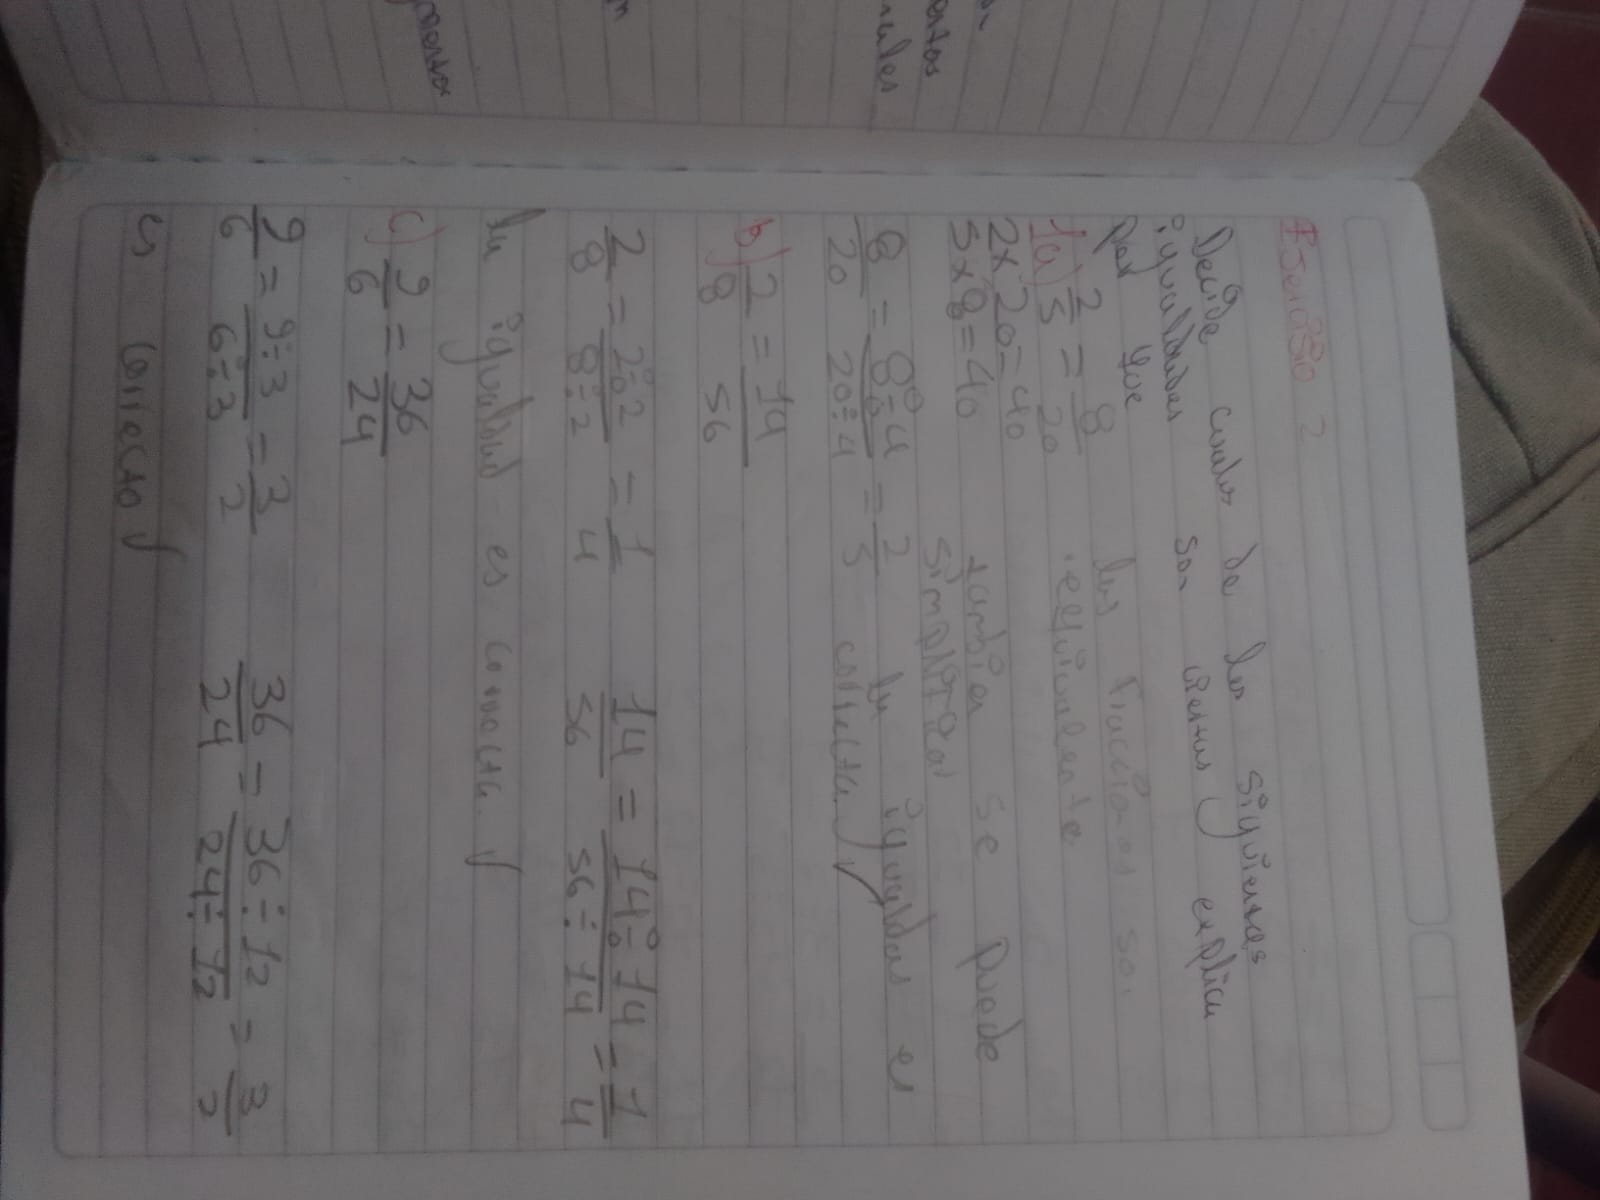 Ejercisio 2
Decide cuales de las siguientes
igualdades son ciertas y explica
por que
1a) 2/5 = 8/20 las fracciones son
equivalente
2x20=40
5x8=40 tambien se puede
simplificar
8/20 = 8÷4/20÷4 = 2/5 la igualdas es
correcta ✓
b) 2/8 = 14/56
2/8 = 2÷2/8÷2 = 1/4 14/56 = 14÷14/56÷14 = 1/4
la igualdad es correcta ✓
c) 9/6 = 36/24
9/6 = 9÷3/6÷3 = 3/2 36/24 = 36÷12/24÷12 = 3/2
es correcto ✓